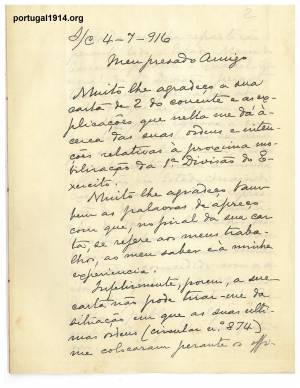 portugal1914.org
2
S/C 4-7-916
Meu presado Amigo
Muito lhe agradeço a sua
carta de 2 do corrente e as ex-
plicações que nella me dá á-
cerca das suas ordens e inten-
ções relativas á proxima mo-
bilisação da 1ª Divisão do E-
xercito.
Muito lhe agradeço tam-
bem as palavras de apreço
com que, no final da sua car-
ta, se refere aos meus traba-
lhos, ao meu saber e á minha
experiencia.
Infelizmente, porem, a sua
carta não pode tirar-me da
situação em que as suas ulti-
mas ordens (circular n.º 874)
me collocaram perante os offi-